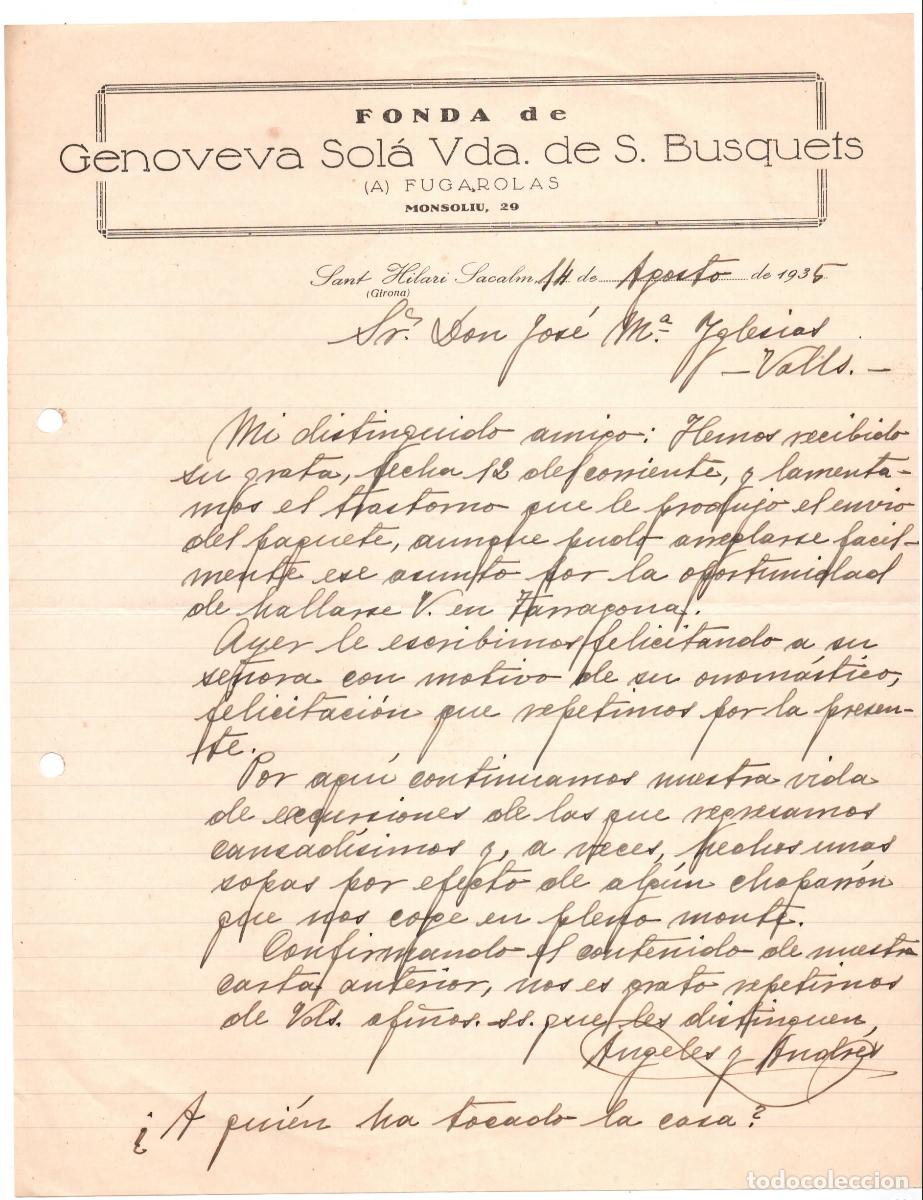 FONDA de
Genoveva Solá Vda. de S. Busquets
(A) FUGAROLAS
MONSOLIU, 29
Sant Hilari Sacalm, 14 de Agosto de 1935
(Girona)
Sr. Don José Mª Yglesias
- Valls. -
Mi distinguido amigo: Hemos recibido
su grata, fecha 12 del corriente, y lamenta-
mos el trastorno que le produjo el envio
del paquete, aunque pudo arreglarse facil-
mente ese asunto por la oportunidad
de hallarse V. en Tarragona.
Ayer le escribimos felicitando a su
señora con motivo de su onomástico,
felicitación que repetimos por la presen-
te.
Por aquí continuamos nuestra vida
de excursiones de las que regresamos
cansadísimos y, a veces, hechos unas
sopas por efecto de algún chaparrón
que nos coge en pleno monte.
Confirmando el contenido de nuestra
carta anterior, nos es grato repetirnos
de Vds. afmos. ss. que les distinguen,
Angeles y Andrés
¿A quién ha tocado la casa?
todocoleccion